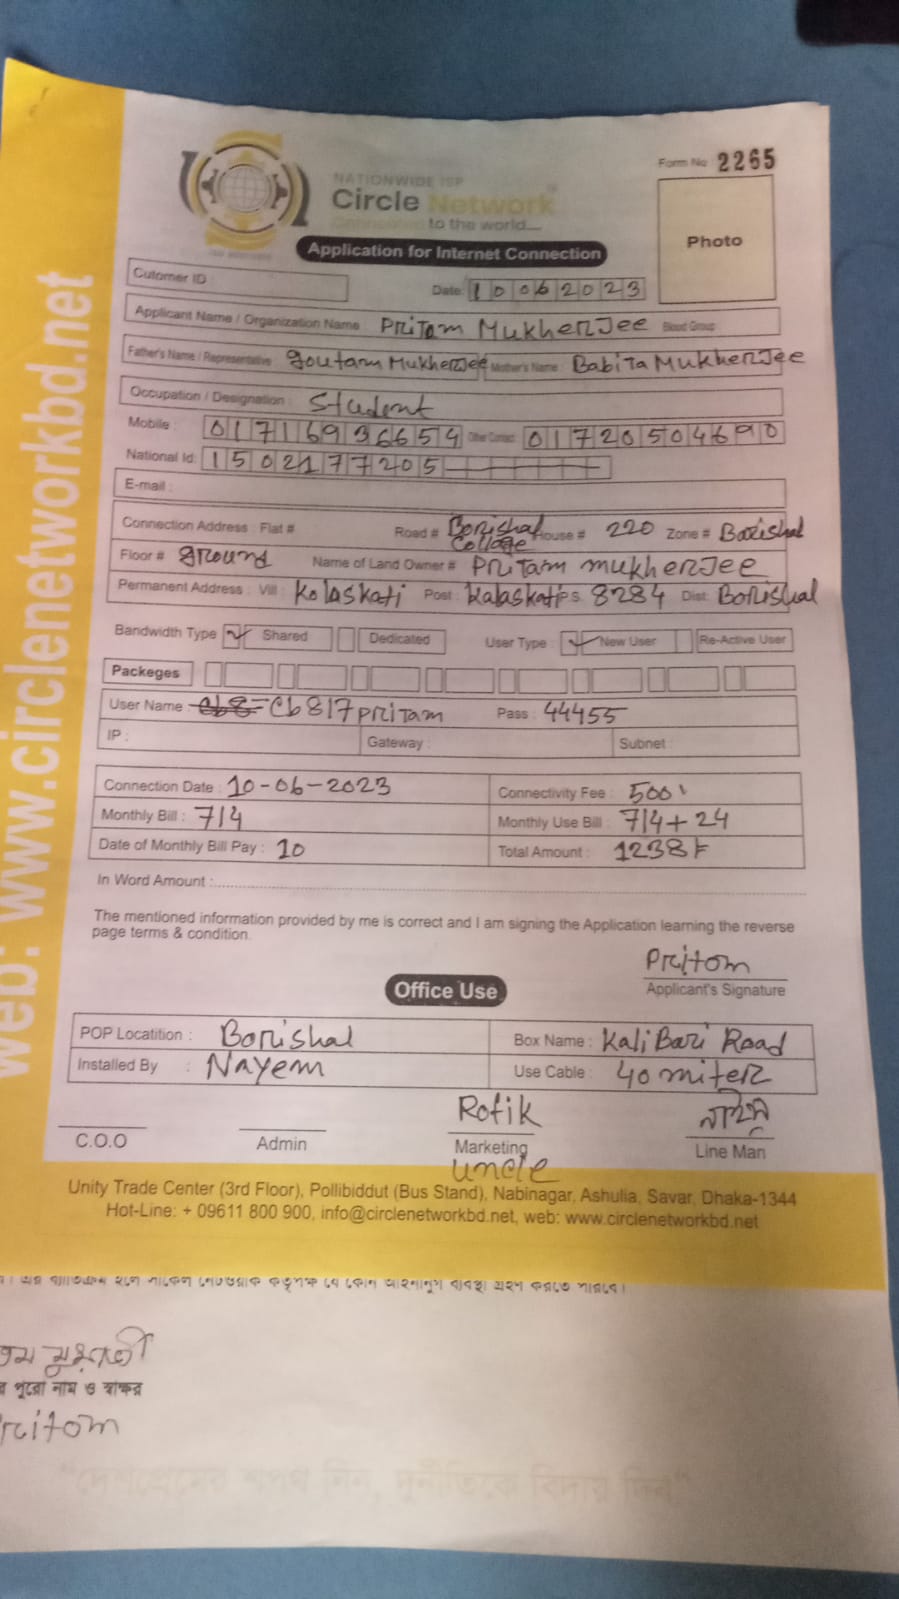 web: www.circlenetworkbd.net
Form No 2265
NATIONWIDE ISP
Circle Network
Connected to the world...
Photo
Application for Internet Connection
Cutomer ID
Date: 10062023
Applicant Name / Organization Name : Pritam Mukherjee Blood Group
Father's Name / Representative Goutam Mukherjee Mother's Name : Babita Mukherjee
Occupation / Designation : Student
Mobile : 01716936654 Other Contact 01720504690
National Id: 1502177205
E-mail :
Connection Address : Flat # Road # Borishal College House # 220 Zone # Borishal
Floor # ground Name of Land Owner # Pritam mukherjee
Permanent Address : Vill : Kolaskati Post : kalaskati PS. 8284 Dist: Borishal
Bandwidth Type ✓ Shared Dedicated User Type : ✓ New User Re-Active User
Packeges
User Name : Cb817pritam Pass : 44455
IP : Gateway : Subnet :
Connection Date : 10-06-2023 Connectivity Fee : 500
Monthly Bill : 714 Monthly Use Bill : 714+24
Date of Monthly Bill Pay : 10 Total Amount : 1238
In Word Amount :
The mentioned information provided by me is correct and I am signing the Application learning the reverse
page terms & condition.
Pritom
Applicant's Signature
Office Use
POP Locatition : Borishal Box Name : Kali Bari Road
Installed By : Nayem Use Cable : 40 miter
Rofik
C.O.O Admin Marketing Line Man
uncle
Unity Trade Center (3rd Floor), Pollibiddut (Bus Stand), Nabinagar, Ashulia, Savar, Dhaka-1344
Hot-Line: + 09611 800 900, info@circlenetworkbd.net, web: www.circlenetworkbd.net
পুরো নাম ও স্বাক্ষর
"দেশপ্রেমের শপথ নিন, দুর্নীতিকে বিদায় দিন"